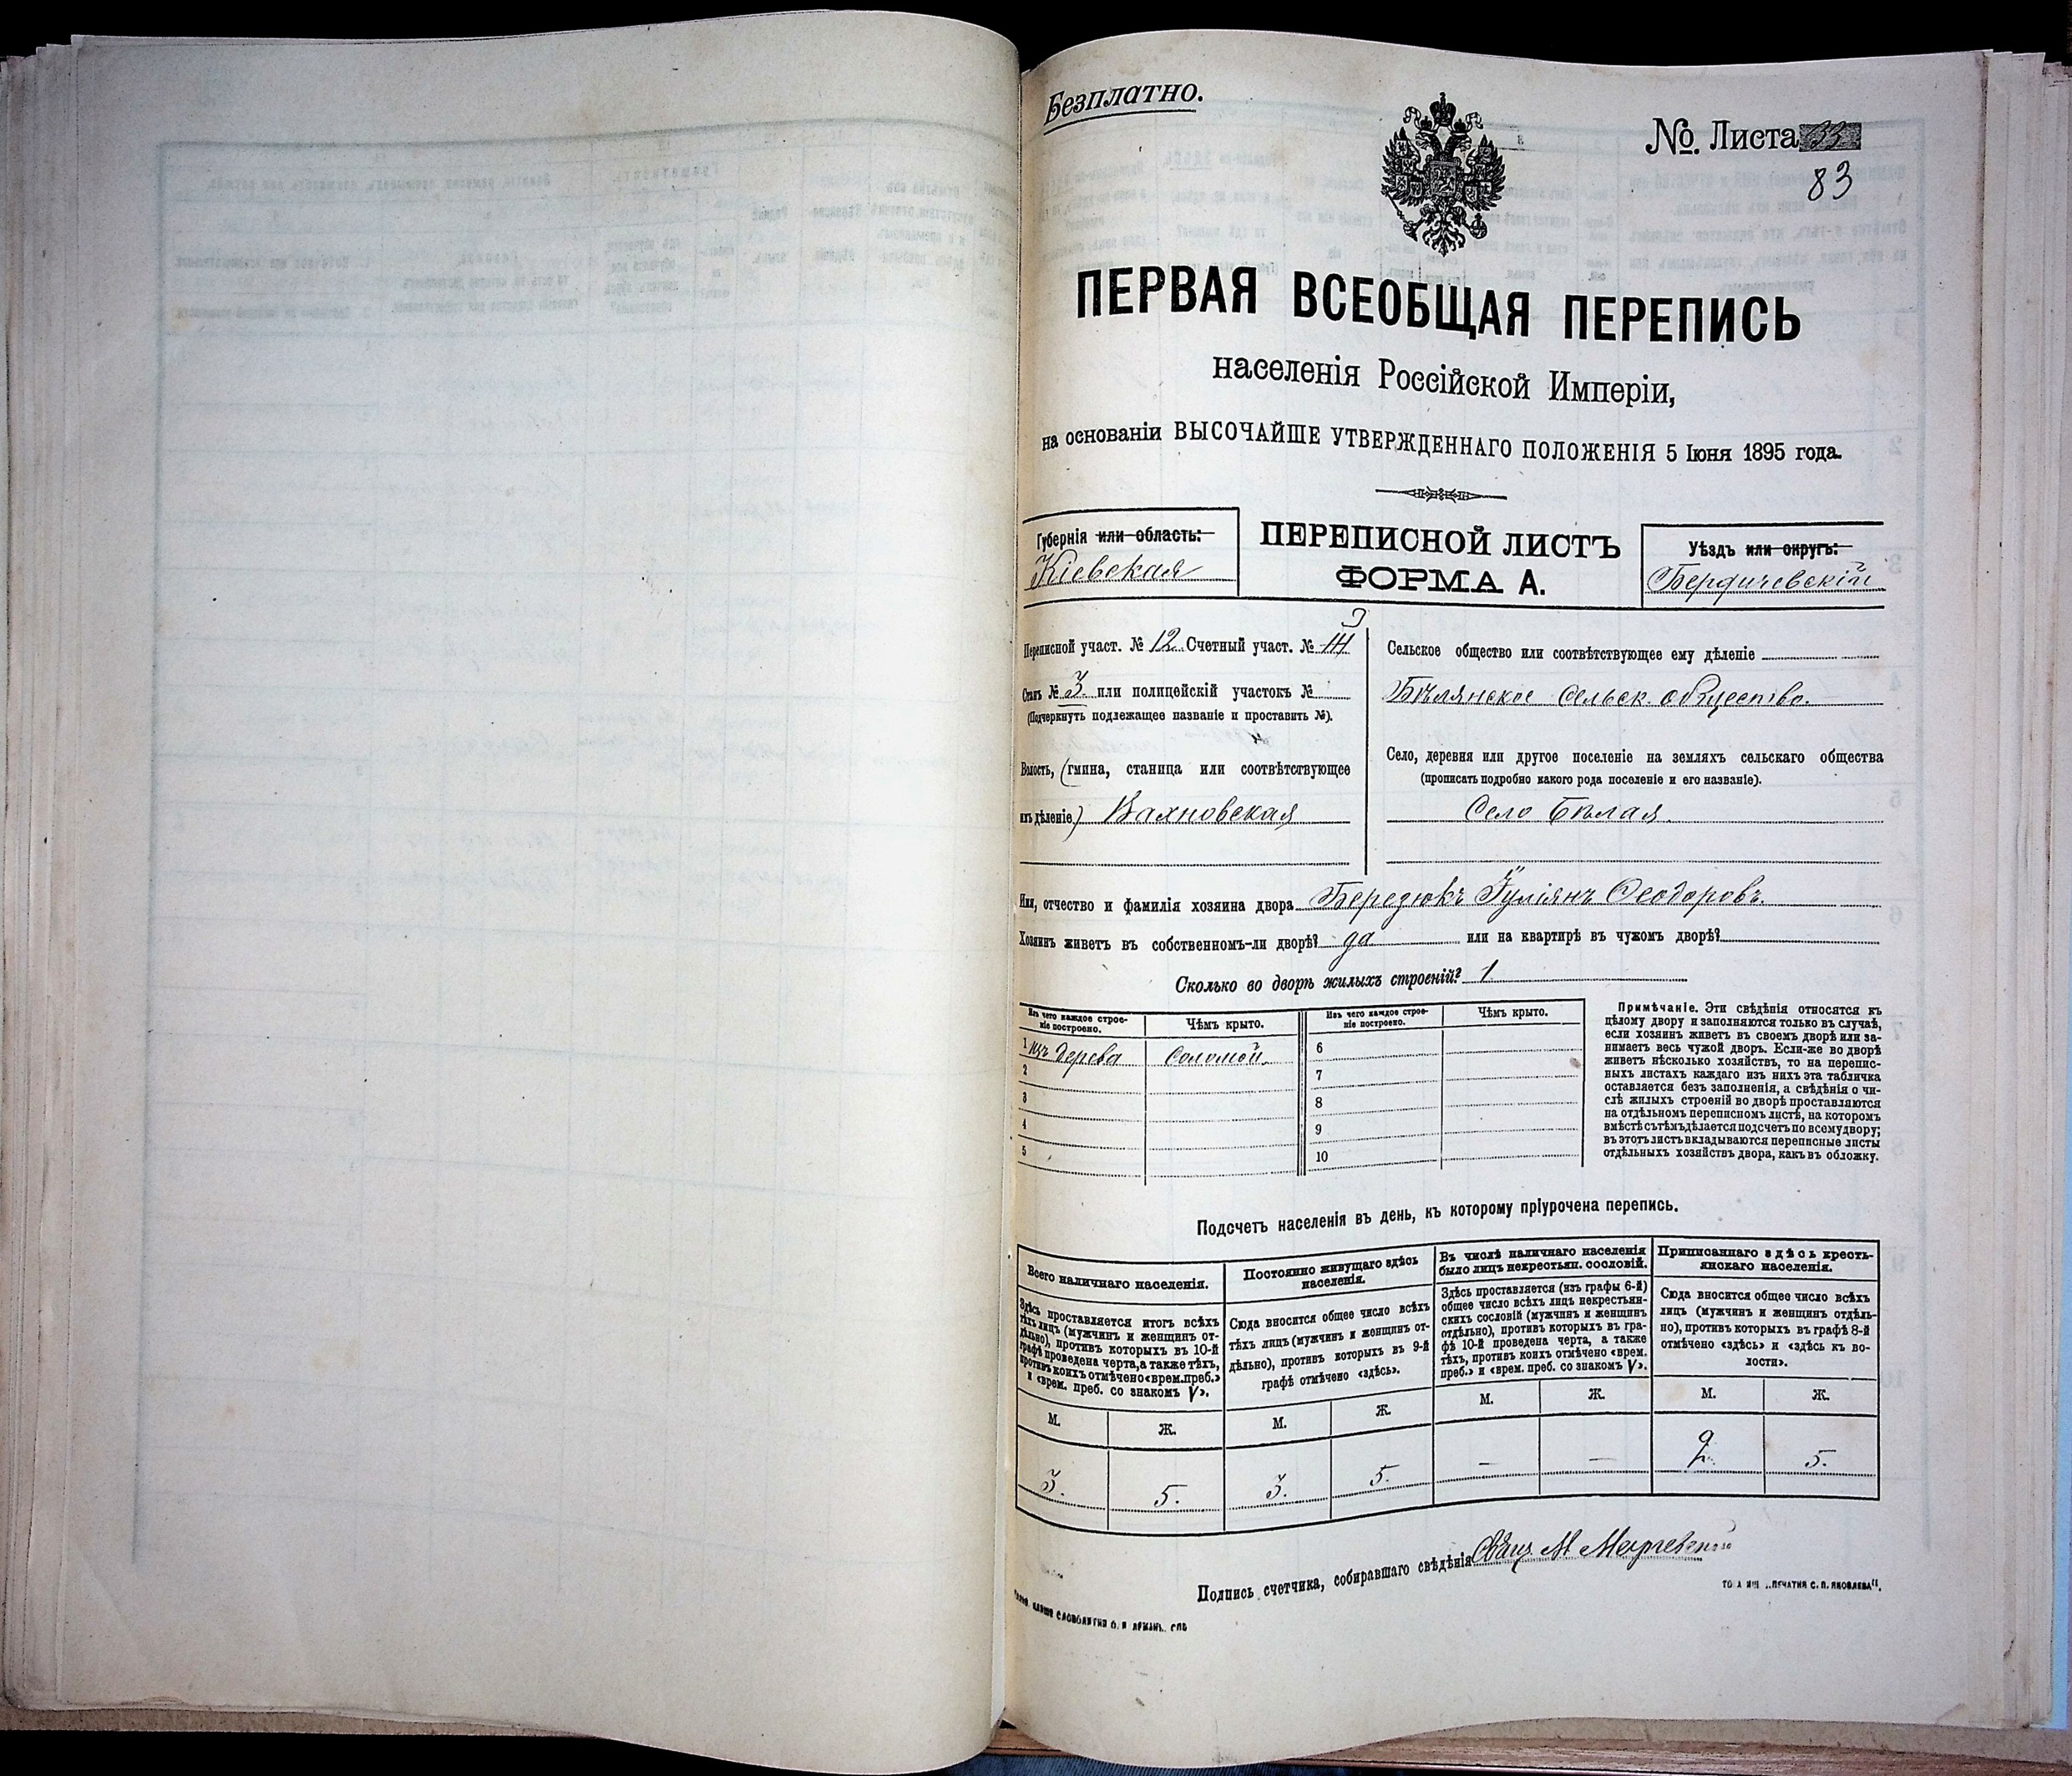 Безплатно.
№ Листа 33
83
ПЕРВАЯ ВСЕОБЩАЯ ПЕРЕПИСЬ
населенія Россійской Имперіи,
на основаніи ВЫСОЧАЙШЕ УТВЕРЖДЕННАГО ПОЛОЖЕНІЯ 5 Іюня 1895 года.
Губернія или область:
Кіевская
ПЕРЕПИСНОЙ ЛИСТЪ
ФОРМА А.
Уѣздъ или округъ:
Бердичевскій
Переписной участ. № 12 Счетный участ. № III
3
Станъ № 3. или полицейскій участокъ №
(Подчеркнуть подлежащее названіе и проставить №).
Волость, (гмина, станица или соотвѣтствующее
имъ дѣленіе) Вахновская
Сельское общество или соотвѣтствующее ему дѣленіе
Бѣлянское сельск. общество.
Село, деревня или другое поселеніе на земляхъ сельскаго общества
(прописать подробно какого рода поселеніе и его названіе).
Село Бѣлая.
Имя, отчество и фамилія хозяина двора Бередюкъ Іуліянъ Ѳеодоровъ.
Хозяинъ живетъ въ собственномъ-ли дворѣ? да или на квартирѣ въ чужомъ дворѣ?
Сколько во дворѣ жилыхъ строеній? 1
Изъ чего каждое строе-
ніе построено.
Чѣмъ крыто.
Изъ чего каждое строе-
ніе построено.
Чѣмъ крыто.
1 изъ дерева соломой 6
2 7
3 8
4 9
5 10
Примѣчаніе. Эти свѣдѣнія относятся къ
цѣлому двору и заполняются только въ случаѣ,
если хозяинъ живетъ въ своемъ дворѣ или за-
нимаетъ весь чужой дворъ. Если-же во дворѣ
живетъ нѣсколько хозяйствъ, то на перепис-
ныхъ листахъ каждаго изъ нихъ эта табличка
оставляется безъ заполненія, а свѣдѣнія о чи-
слѣ жилыхъ строеній во дворѣ проставляются
на отдѣльномъ переписномъ листѣ, на которомъ
вмѣстѣ съ тѣмъ дѣлается подсчетъ по всему двору;
въ этотъ листъ вкладываются переписные листы
отдѣльныхъ хозяйствъ двора, какъ въ обложку.
Подсчетъ населенія въ день, къ которому пріурочена перепись.
Всего наличнаго населенія.
Здѣсь проставляется итогъ всѣхъ
тѣхъ лицъ (мужчинъ и женщинъ от-
дѣльно), противъ которыхъ въ 10-й
графѣ проведена черта, а также тѣхъ,
противъ коихъ отмѣчено «врем. преб.»
и «врем. преб. со знакомъ V».
Постоянно живущаго здѣсь
населенія.
Сюда вносится общее число всѣхъ
тѣхъ лицъ (мужчинъ и женщинъ от-
дѣльно), противъ которыхъ въ 9-й
графѣ отмѣчено «здѣсь».
Въ числѣ наличнаго населенія
было лицъ некрестьян. сословій.
Здѣсь проставляется (изъ графы 6-й)
общее число всѣхъ лицъ некрестьян-
скихъ сословій (мужчинъ и женщинъ
отдѣльно), противъ которыхъ въ гра-
фѣ 10-й проведена черта, а также
тѣхъ, противъ коихъ отмѣчено «врем.
преб.» и «врем. преб. со знакомъ V».
Приписаннаго здѣсь кресть-
янскаго населенія.
Сюда вносится общее число всѣхъ
лицъ (мужчинъ и женщинъ отдѣль-
но), противъ которыхъ въ графѣ 8-й
отмѣчено «здѣсь» и «здѣсь къ во-
лости».
М. Ж. М. Ж. М. Ж. М. Ж.
3. 5. 3. 5. — — 2 5.
Подпись счетчика, собиравшаго свѣдѣнія Свящ. М